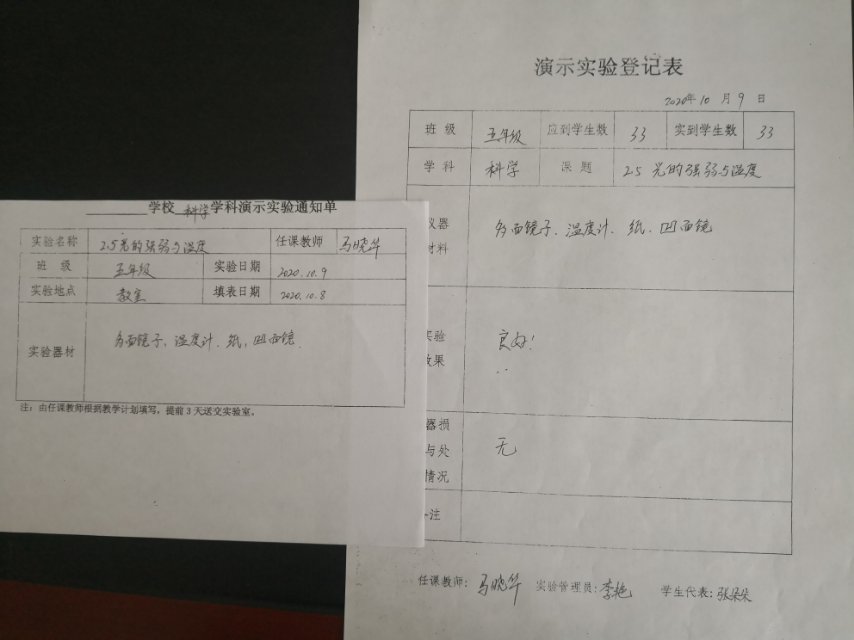 学校 科学 学科演示实验通知单
实验名称 2.5光的强弱与温度 任课教师 马晓华
班 级 五年级 实验日期 2020.10.9
实验地点 教室 填表日期 2020.10.8
实验器材 多面镜子、温度计、纸、凹面镜.
注：由任课教师根据教学计划填写，提前3天送交实验室。
演示实验登记表
2020年10月9日
班 级 五年级 应到学生数 33 实到学生数 33
学 科 科学 课 题 2.5 光的强弱与温度
仪器
材料 多面镜子、温度计、纸、凹面镜
实验
效果 良好!
器损
与处 无
情况
注
任课教师：马晓华 实验管理员：李艳 学生代表：张朵朵